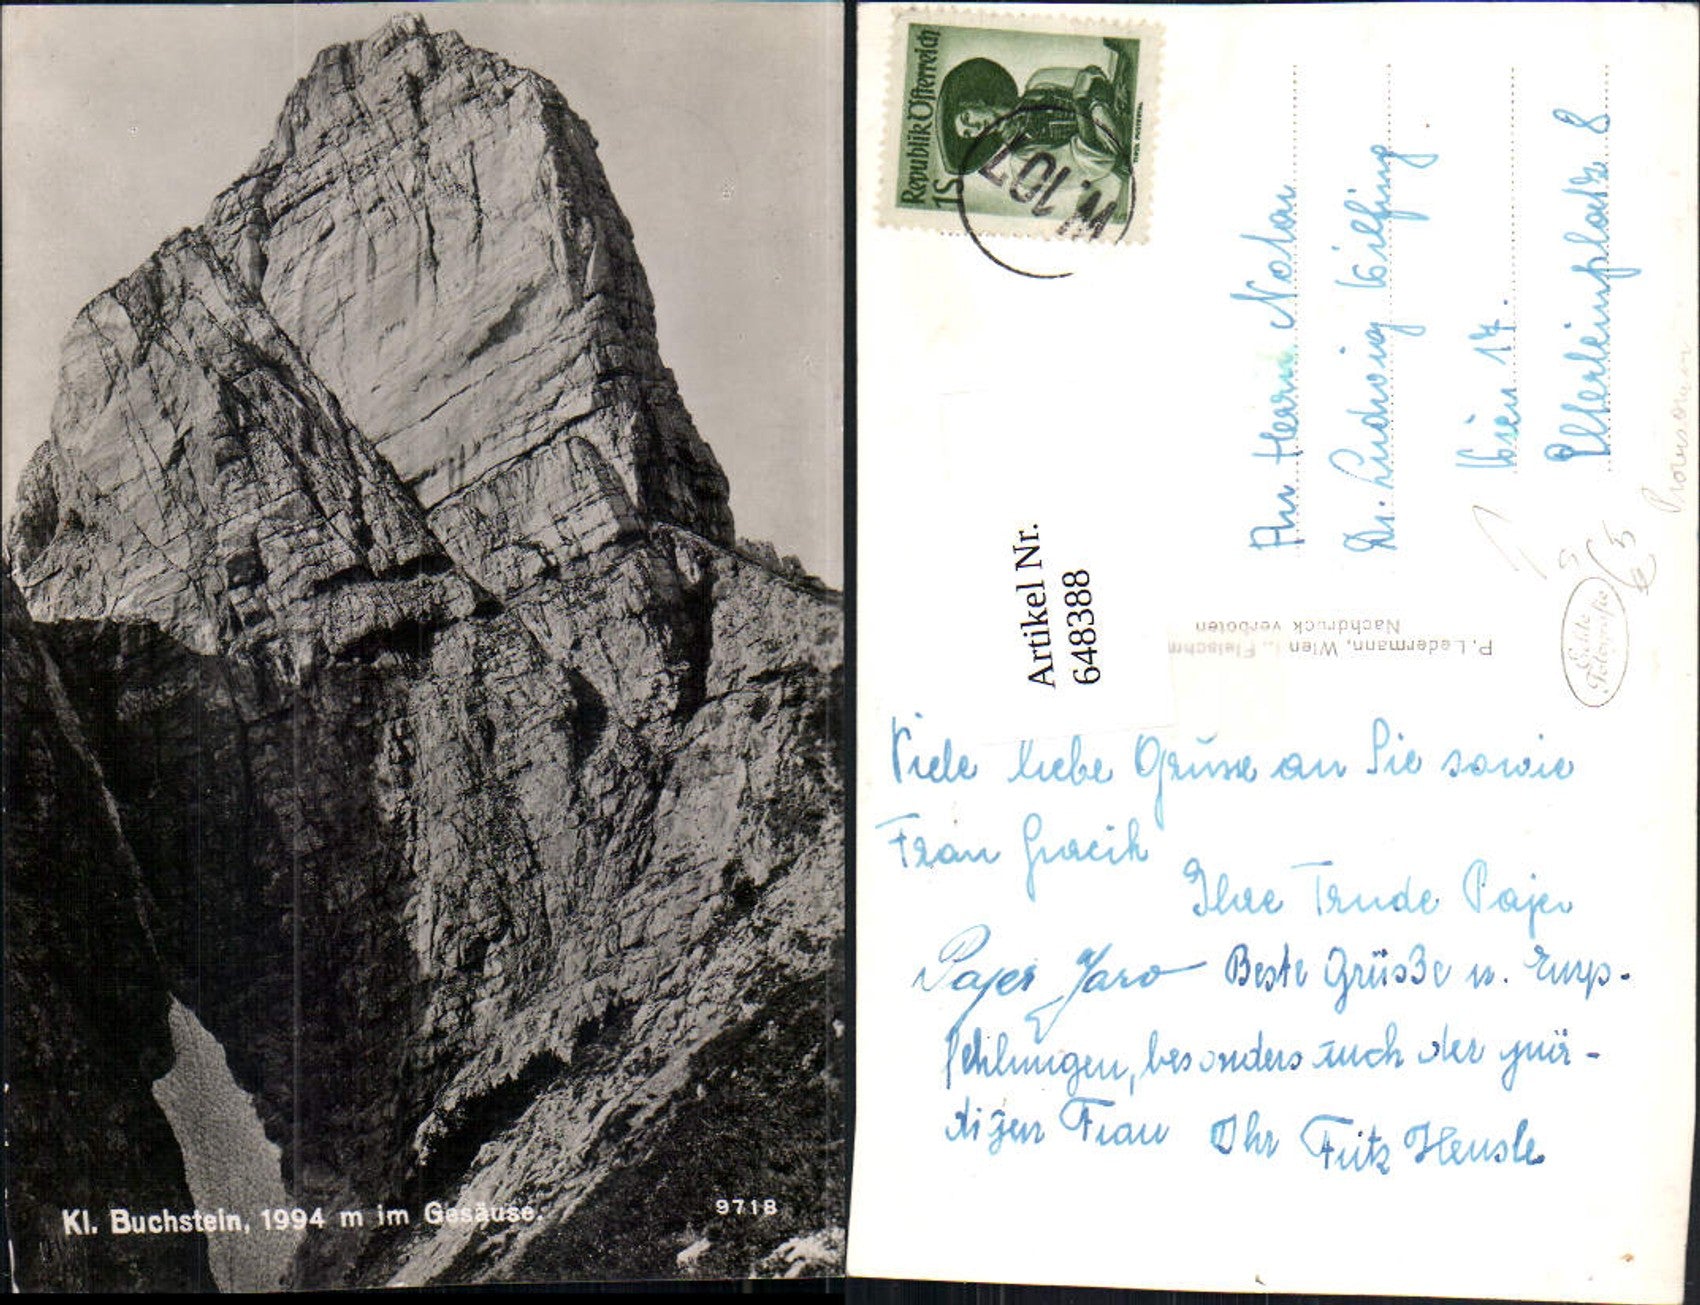 Kl. Buchstein, 1994 m im Gesäuse.
9718
Republik Österreich
1 S
W. 107
Artikel Nr.
6483388
Notar
Dr. Ludwig
Wien 17.
Elterleinplatz 8
P. Ledermann, Wien I., Fleischm
Nachdruck verboten
Echte
Fotografie
Viele liebe Grüsse an Sie sowie
Frau
Ihre Trude Pajer
Pajer Jaro Beste Grüsse u. Emp-
fehlungen, besonders auch der gnä-
digen Frau Ihr Fritz Hensle